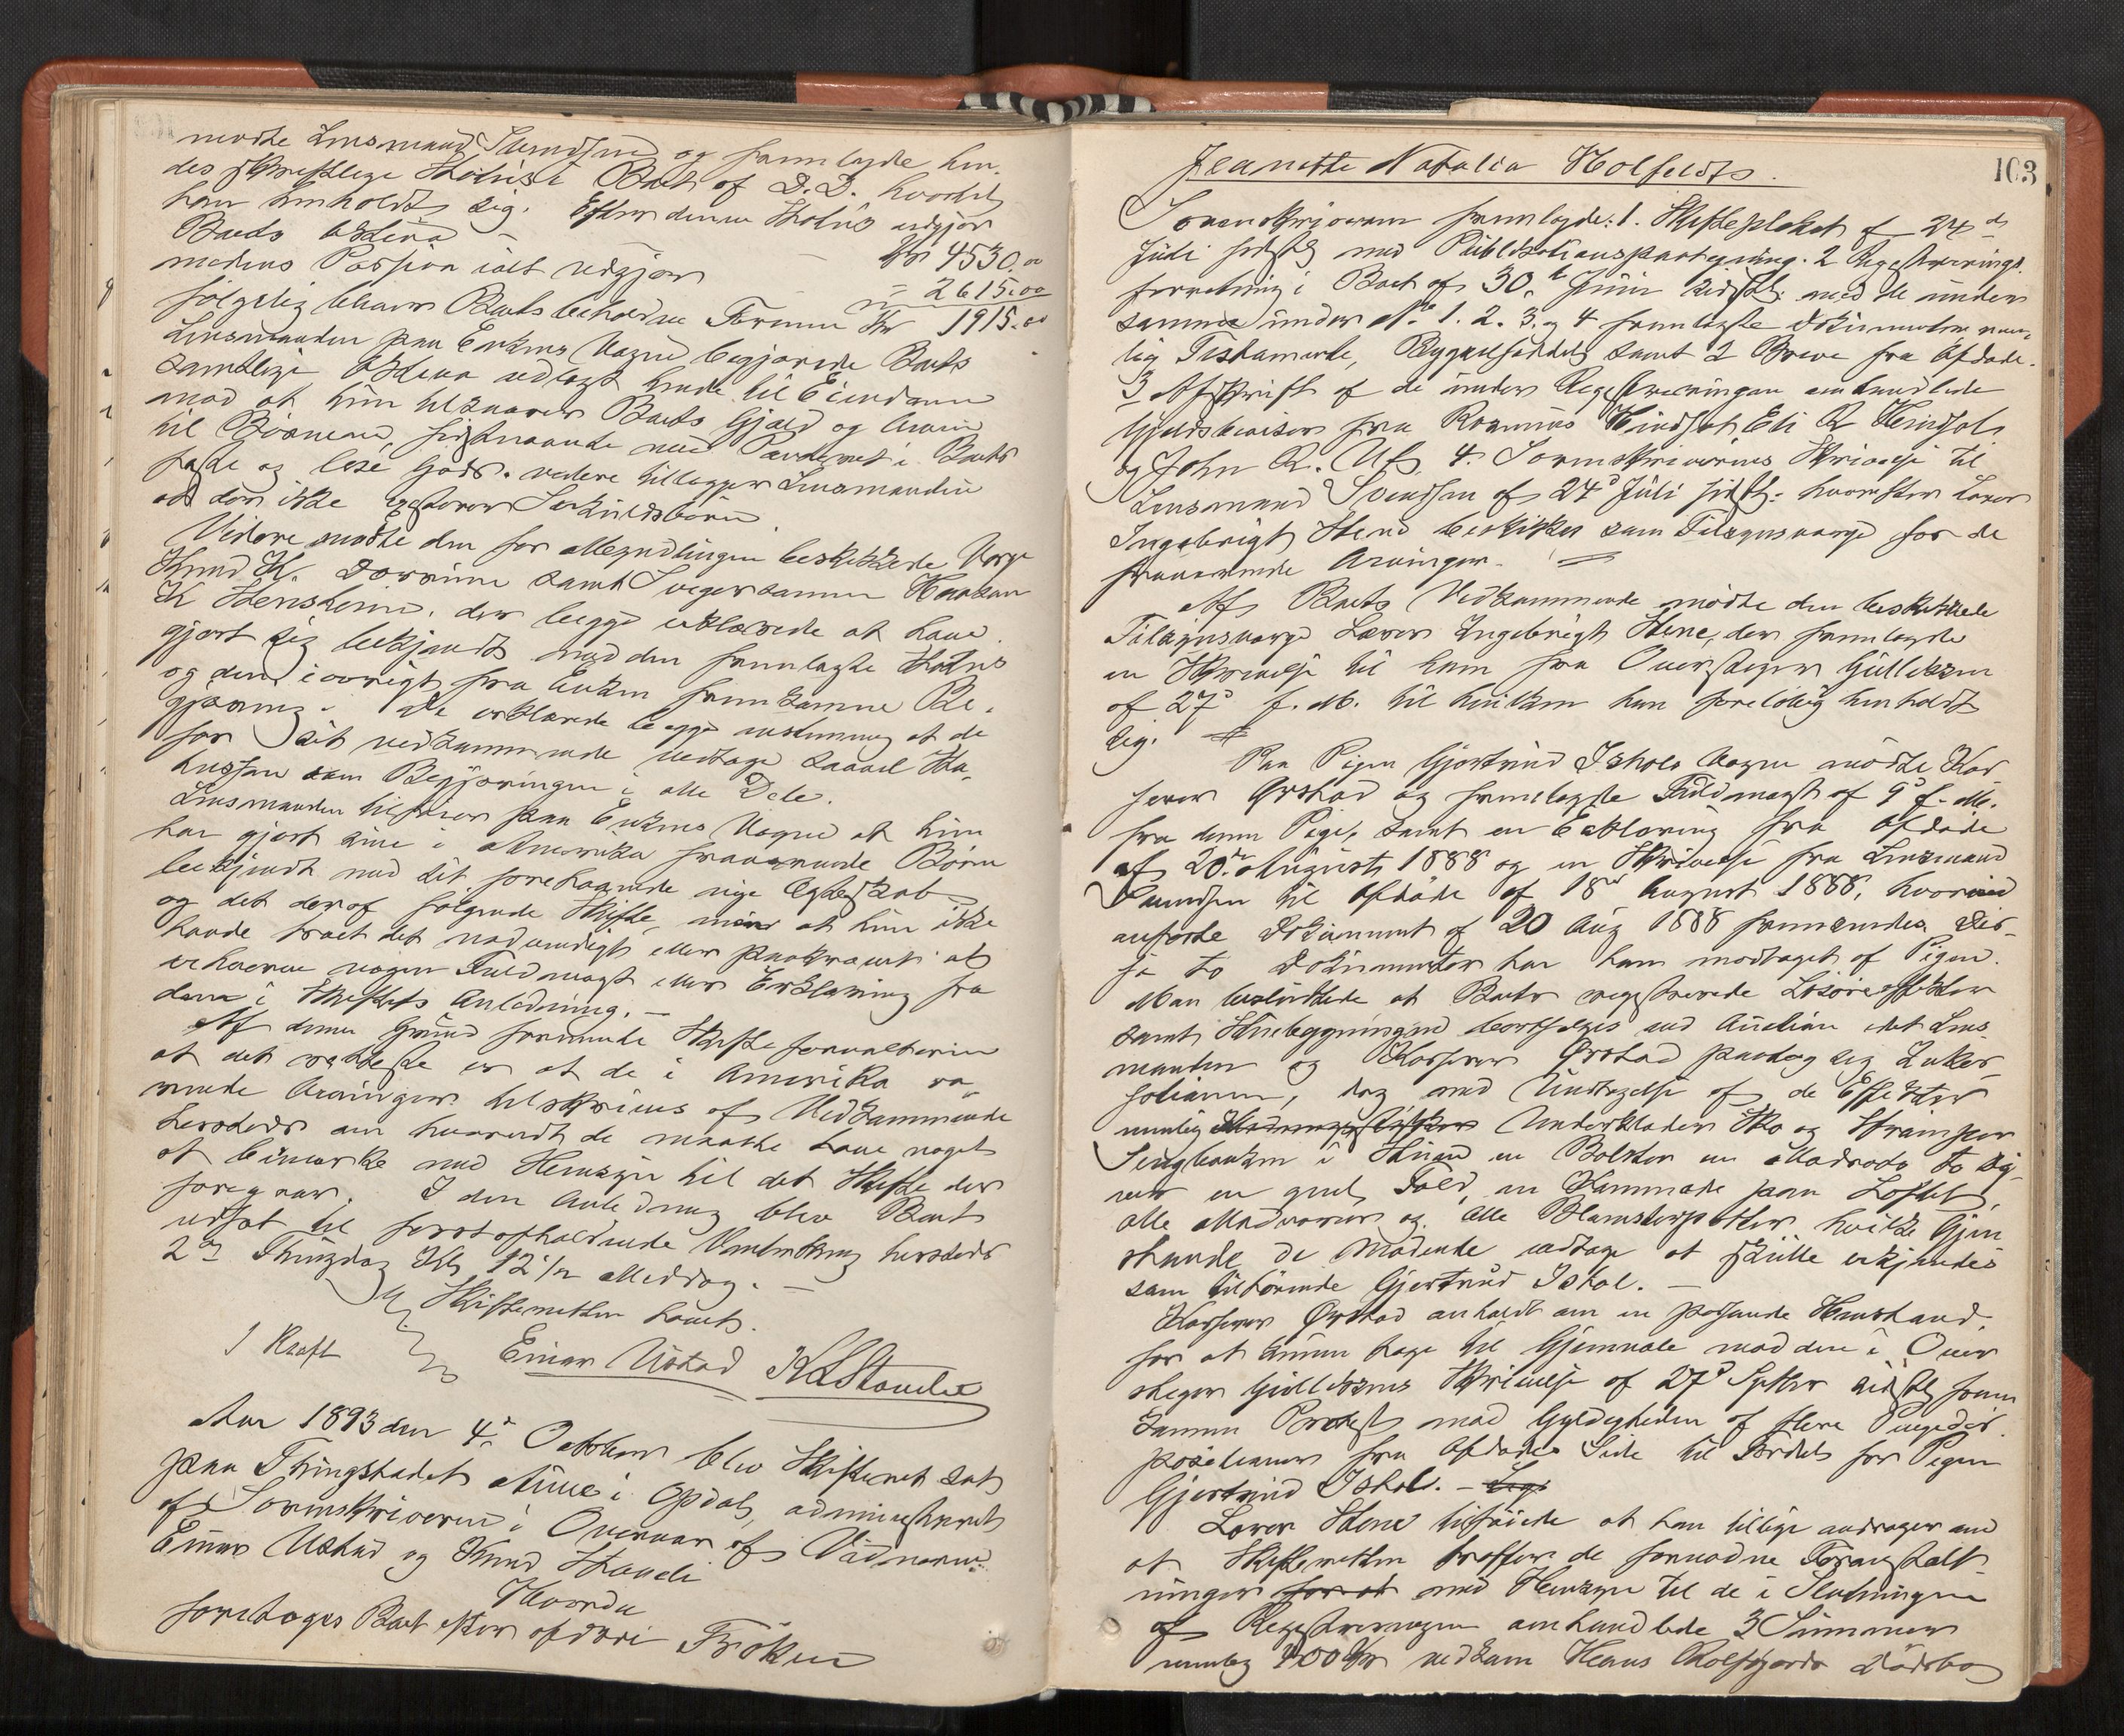 mødte Lensmand Svendsen og fremlagde hen
des skriftlige Status i Boet af D.D. hvortil
han henholdt sig. Efter denne Status udgjør
Boets Aktiva - - Kr 4530.00
medens Passiva ialt udgjør - " 2615.00
følgelig bliver Boets beholdne Formue Kr 1915.00
Lensmanden paa Enkens Vegne begjærede Boets
samtlige Aktiva udlagt hende til Eiendom
mod at hun tilsvarer Boets Gjæld og Arven
til Børnene, sidstnævnte med Panderet i Boets
faste og løse Gods. videre tillægger Lensmanden
at der ikke existerer Særkuldsbørn.
Videre mødte den for Umyndlingen beskikkede Værge
Knud K. samt Svigersønnen Haakon
K Stensheim, der begge erklærede at have
gjort sig bekjendt med den fremlagte Status
og den iøvrigt fra Enken fremkomne Be-
gjæring. De erklærede begge at de
for sit vedkommende vedtage saavel Sta-
tussen som Begjæringen i alle Dele.
Lensmanden tilføier paa Enkens Vegne at hun
har gjort sine i Amerika fraværende Børn
bekjendt med sit forehavende nye Ægteskab
og det deraf følgende Skifte, men at hun ikke
havde troet det nødvendigt eller paakrævet at
erhverve nogen Fuldmagt eller Erklæring fra
dem i Skiftets Anledning. -
Af denne Grund formente Skifteforvalteren
at det retteste er at de i Amerika væ-
rende Arvinger tilskrives af Vedkommende
hersteds om hvorvidt de maatte have noget
at bemærke med Hensyn til det Skifte der
foregaar. I den Anledning blev Boet
udsat til førstafholdende hersteds
2den Thingdag Kl 12 1/2 Middag. -
Skifteretten hævet.
I Kraft
Einar Ustad K L Stauele
Aar 1893 den 4de Oktober blev Skifteret sat
paa Thingstedet Aune i Opdal, administreret
af Sorenskriveren i Overvær af Vidnerne
Einar Ustad og Knud Stauele
Hvorda
foretoges Boet efter afdøde Frøken
103
Jeanette Natalia Holfeldts.
Sorenskriveren fremlagde: 1. Skifteplakat af 24de
Juli sidstl. med Publikationspaategning. 2 Registrerings
forretning i Boet af 30te Juni sidstl. med de under
samme under No 1. 2. 3. og 4 fremlagte Dokumenter nem-
lig Testamente, Bygselseddel samt 2 Breve fra Afdøde.
3 Afskrift af de under Registreringen omhandlede
Gjældsbeviser fra Rasmus Eli R
og John R. 4. Sorenskriverens Skrivelse til
Lensmand Svendsen af 24de Juli sidstl. hvorefter Lærer
Ingebrigt Stene beskikkes som Tilsynsværge for de
fraværende Arvinger. -
Af Boets Vedkommende mødte den beskikkede
Tilsynsværge Lærer Ingebrigt Stene, der fremlagde
en Skrivelse til ham fra Oversteger Gulliksen
af 27de f. M. til hvilken han foreløbig henholdt
sig.
Paa Pigen Gjertrud Ishols Vegne mødte Kas-
serer Ørstad og fremlagte Fuldmagt af 9de f. M.
fra denne Pige, samt en Erklæring fra Afdøde
af 20de August 1888 og en Skrivelse fra Lensmand
Svendsen til Afdøde af 18de August 1888, hvorved
anførte Dokument af 20 Aug 1888 fremsendes. Dis-
se to Dokumenter har ham modtaget af Pigen.
Man besluttede at Boets registrerede Løsøreeffekter
samt Stuebygningen bortsælges ved Auktion idet Lens
manden og Kasserer Ørstad paatog sig Inkas-
sationen, dog med Undtagelse af de Effekter
nemlig Underklæder Sko og Strømper
Sengbænken i Stuen en Bolster en Madrads to Dy-
ner en graa Fæld, en Kommode paa Loftet,
alle Madvarer og alle Blomsterpotter hvilke Gjen
stande de Mødende vedtoge at skulle erkjendes
som tilhørende Gjertrud Ishol. -
Kasserer Ørstad anholdt om en passende Henstand
for at kunne tage til Gjenmæle mod den i Over
steger Gulliksens Skrivelse af 27de Septbr sidstl frem
komne Protest mod Gyldigheden af flere
positioner fra Afdødes Side til Fordel for Pigen
Gjertrud Ishol. -
Lærer Stene tilføiede at han tillige andrager om
at Skifteretten træffer de fornødne Foranstalt
ninger for at med Hensyn til de i Slutningen
af Registreringen omhandlede 3 Summer
nemlig 400 Kr vedkom Hans Rolfsgaards Dødsbo